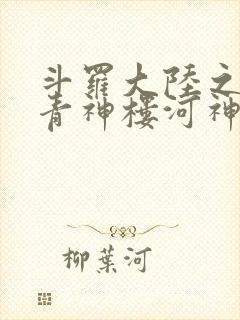 斗羅大陸之
青神樓河神
柳葉河